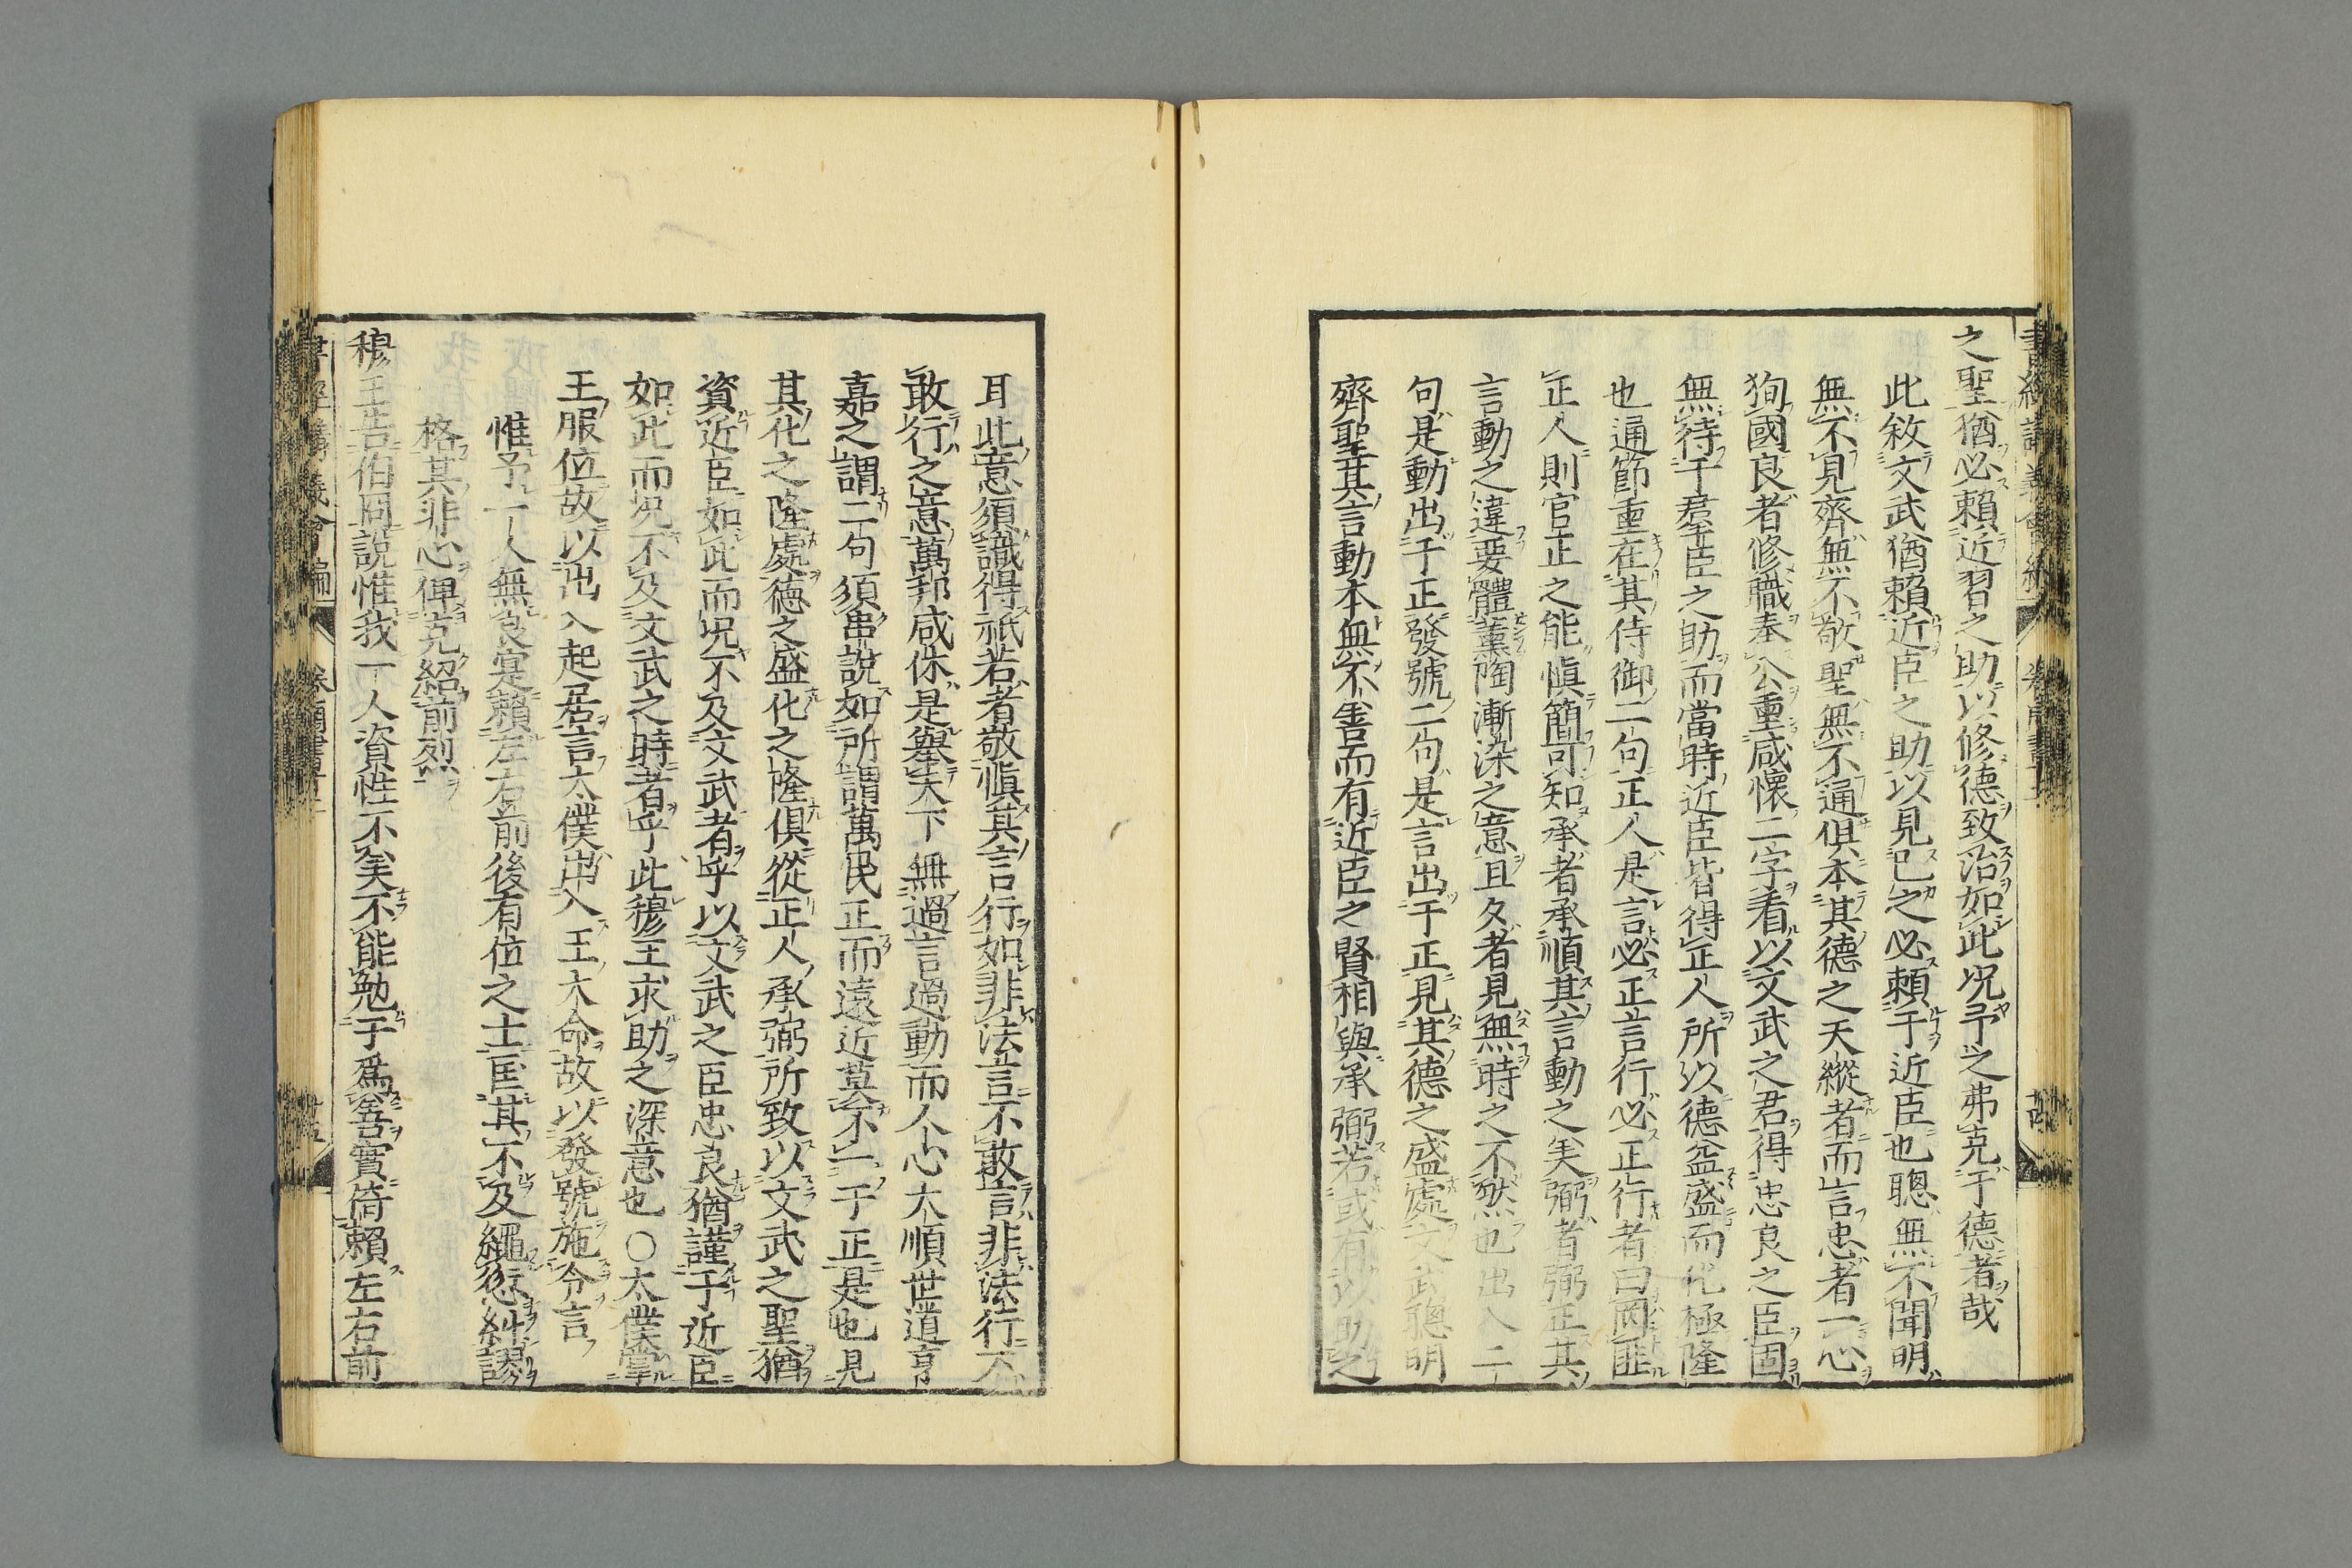 之聖猶必賴近習之助以修德致治如此況予之弗克于德者哉
此敘文武猶賴近臣之助以見已之必賴于近臣也聰無不聞明
無不見齊無不敬聖無不通俱本其德之天縱者而言忠者一心
狥國良者修職奉公重咸懷二字看以文武之君得忠良之臣固
無待于羣臣之助而當時近臣皆得正人所以德益盛而化極隆
也通節重在其侍御二句正人是言必正言行必正行者曰罔匪
正人則官正之能慎簡可知承者承順其言動之美弼者弼正其
言動之違要體薰陶漸染之意且夕者見無時之不然也出入二
句是動出于正發號二句是言出于正見其德之盛處文武聰明
齊聖其言動本無不善而有近臣之賢相與承弼若或有以助之
耳此意須識得祇若者敬慎其言行如非法言不敢言非法行不
敢行之意萬邦咸休是舉天下無過言過動而人心大順世道亨
嘉之謂二句須串說如所謂萬民正而遠近莫不一于正是也見
其化之隆處德之盛化之隆俱從正人承弼所致以文武之聖猶
資近臣如此而況不及文武者乎以文武之臣忠良猶謹于近臣
如此而況不及文武之時者乎此穆王求助之深意也○太僕掌
王服位故以出入起居言太僕出入王大命故以發號施令言
惟予一人無良寔賴左右前後有位之士匡其不及繩愆糾謬
格其非心俾克紹前烈
穆王告伯冏說惟我一人資性不美不能勉于爲善實倚賴左右前